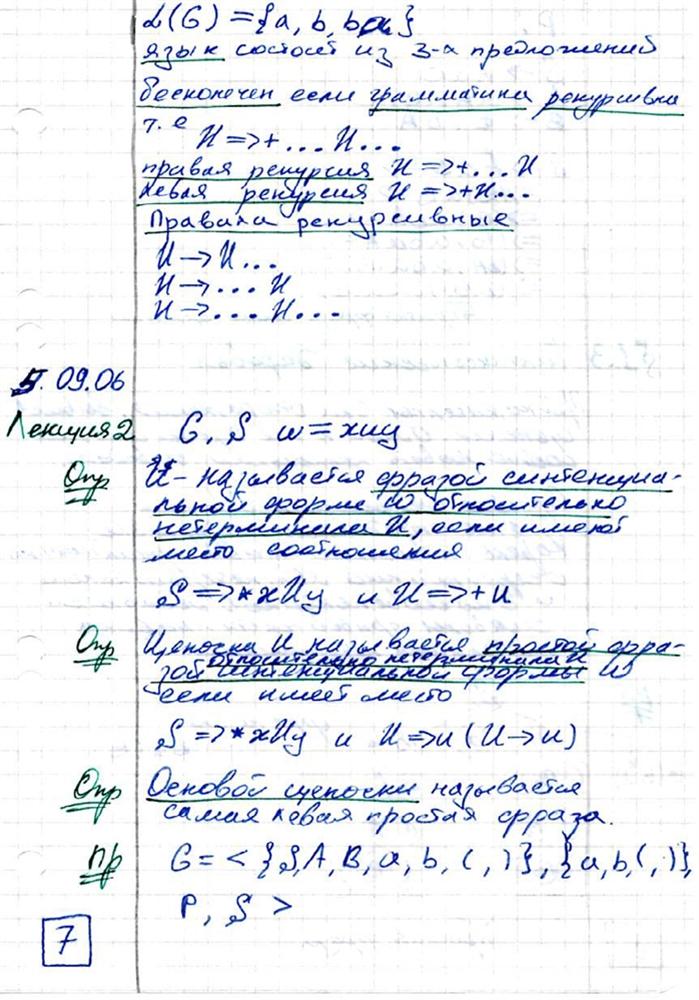 L(G) = {a, b, ba}
язык состоит из 3-х предложений
бесконечен если грамматика рекурсивна
т.е
U =>+ ... U ...
правая рекурсия U =>+ ... U
левая рекурсия U =>+ U ...
Правила рекурсивные
U -> U ...
U -> ... U
U -> ... U ...
5. 09.06
Лекция 2 G, S w = xuy
Опр U - называется фразой синтенциа-
льной форме w относительно
нетерминала U, если имеют
место соотношения
S =>* xUy и U =>+ u
Опр Цепочка u называется простой фра-
относительно нетерминала U
зой синтенциальной формы w
если имеет место
S =>* xUy и U => u (U -> u)
Опр Основой цепочки называется
самая левая простая фраза.
пр G = < {S, A, B, a, b, (, )}, {a, b, (, )},
P, S >
7